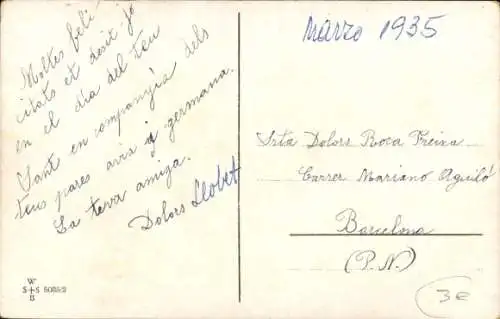 Moltes feli
citats et desit jo
en el dia del teu
Sant en companyia dels
teus pares avia y germana.
La teva amiga.
Dolors Llobet
Marzo 1935
Srta Dolors Roca Freixa
Carrer Mariano Aguiló
Barcelona
(P.N.)
W
S+S 5088/2
B
3€